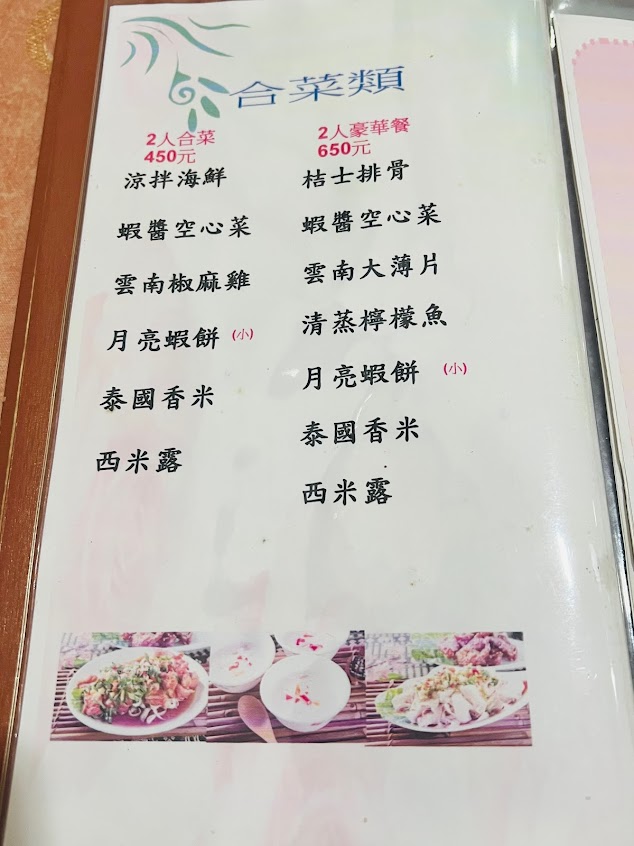 合菜類
2人合菜
450元
涼拌海鮮
蝦醬空心菜
雲南椒麻雞
月亮蝦餅 (小)
泰國香米
西米露
2人豪華餐
650元
桔士排骨
蝦醬空心菜
雲南大薄片
清蒸檸檬魚
月亮蝦餅 (小)
泰國香米
西米露